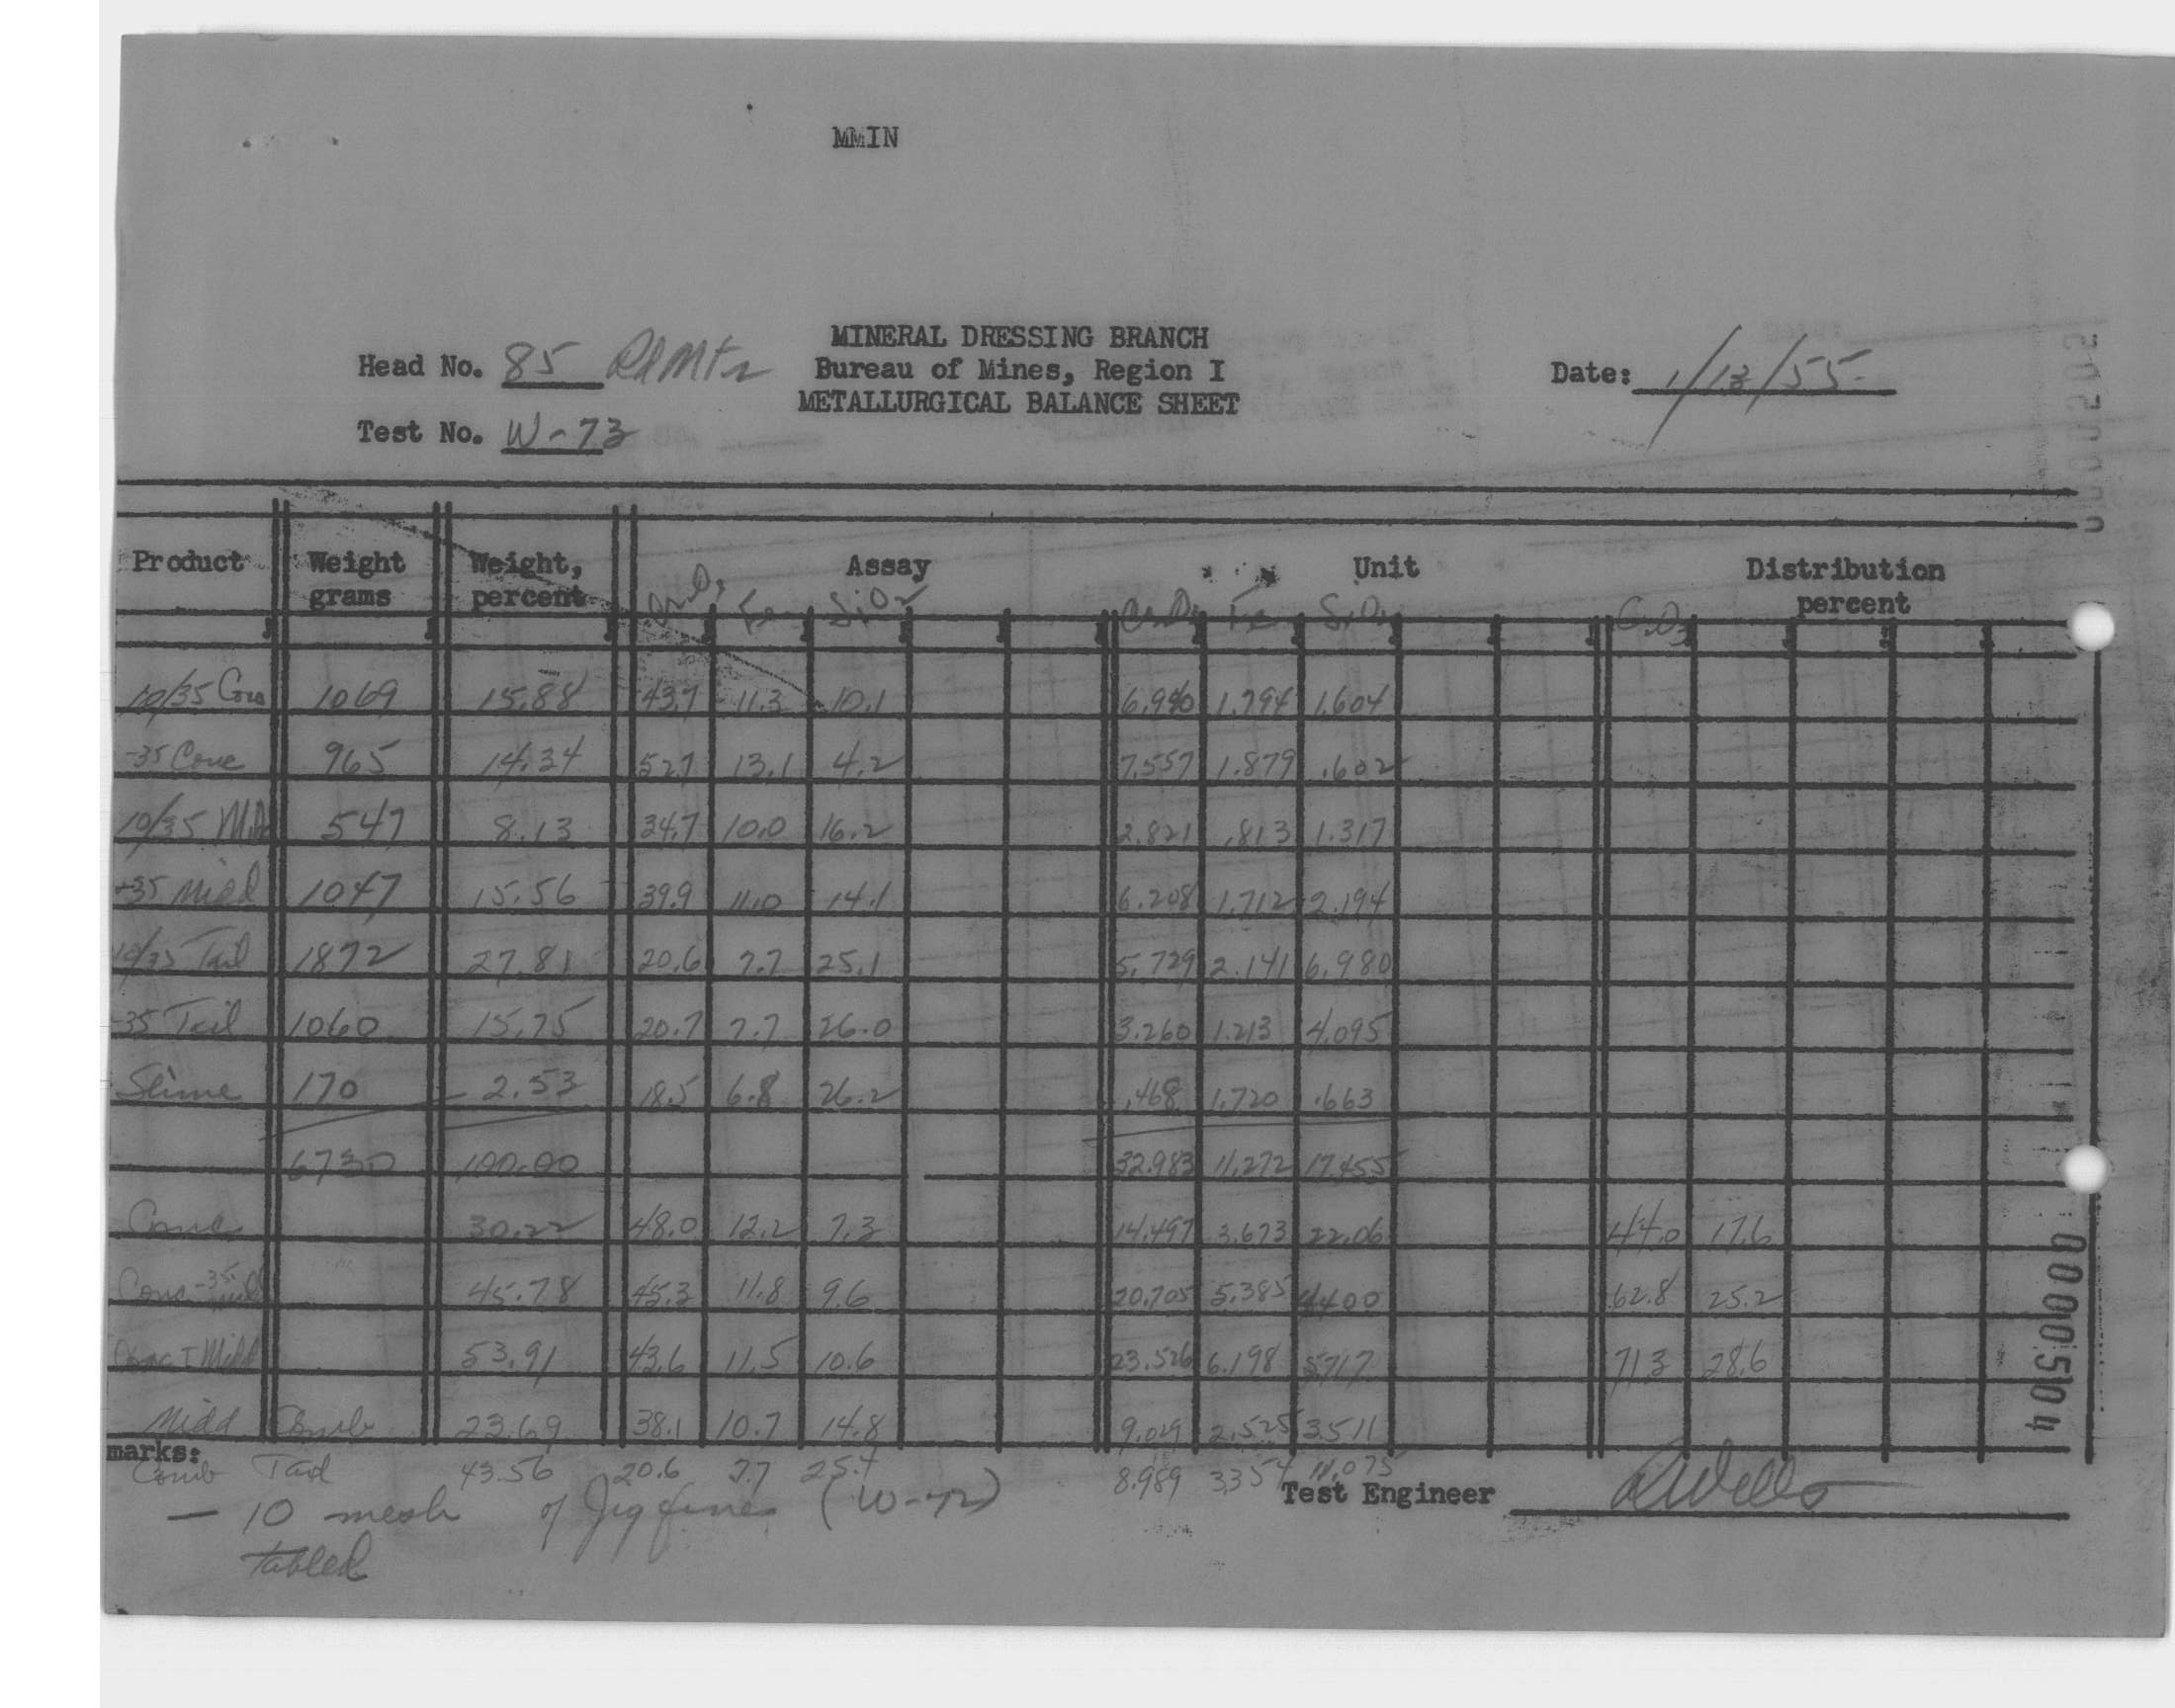 MMIN
MINERAL DRESSING BRANCH
Head No. 85 Rd Mtn Bureau of Mines, Region I Date: 1/13/55
METALLURGICAL BALANCE SHEET
Test No. W-73
Product Weight grams Weight, percent Assay Unit Distribution percent
Cr2O3 Fe SiO2 Cr2O3 Fe SiO2 Cr2O3
10/35 Conc 1069 15.88 43.7 11.3 10.1 6.940 1.794 1.604
-35 Conc 965 14.34 52.7 13.1 4.2 7.557 1.879 .602
10/35 Midd 547 8.13 34.7 10.0 16.2 2.821 .813 1.317
-35 Midd 1047 15.56 39.9 11.0 14.1 6.208 1.712 2.194
10/35 Tail 1872 27.81 20.6 7.7 25.1 5.729 2.141 6.980
-35 Tail 1060 15.75 20.7 7.7 26.0 3.260 1.213 4.095
Slime 170 2.53 18.5 6.8 26.2 .468 1.720 .663
6730 100.00 32.983 11.272 17.455
Conc 30.22 48.0 12.2 7.3 14.497 3.673 22.06 44.0 17.6
Conc -35 Midd 45.78 45.3 11.8 9.6 20.705 5.385 4.400 62.8 25.2
Conc + Midd 53.91 43.6 11.5 10.6 23.526 6.198 5.717 71.3 28.6
Midd Comb 23.69 38.1 10.7 14.8 9.029 2.525 3.511
marks:
Comb Tail 43.56 20.6 7.7 25.4 8.989 3.354 11.075
Test Engineer RWells
- 10 mesh of Jig fines (W-72)
tabled
0000504